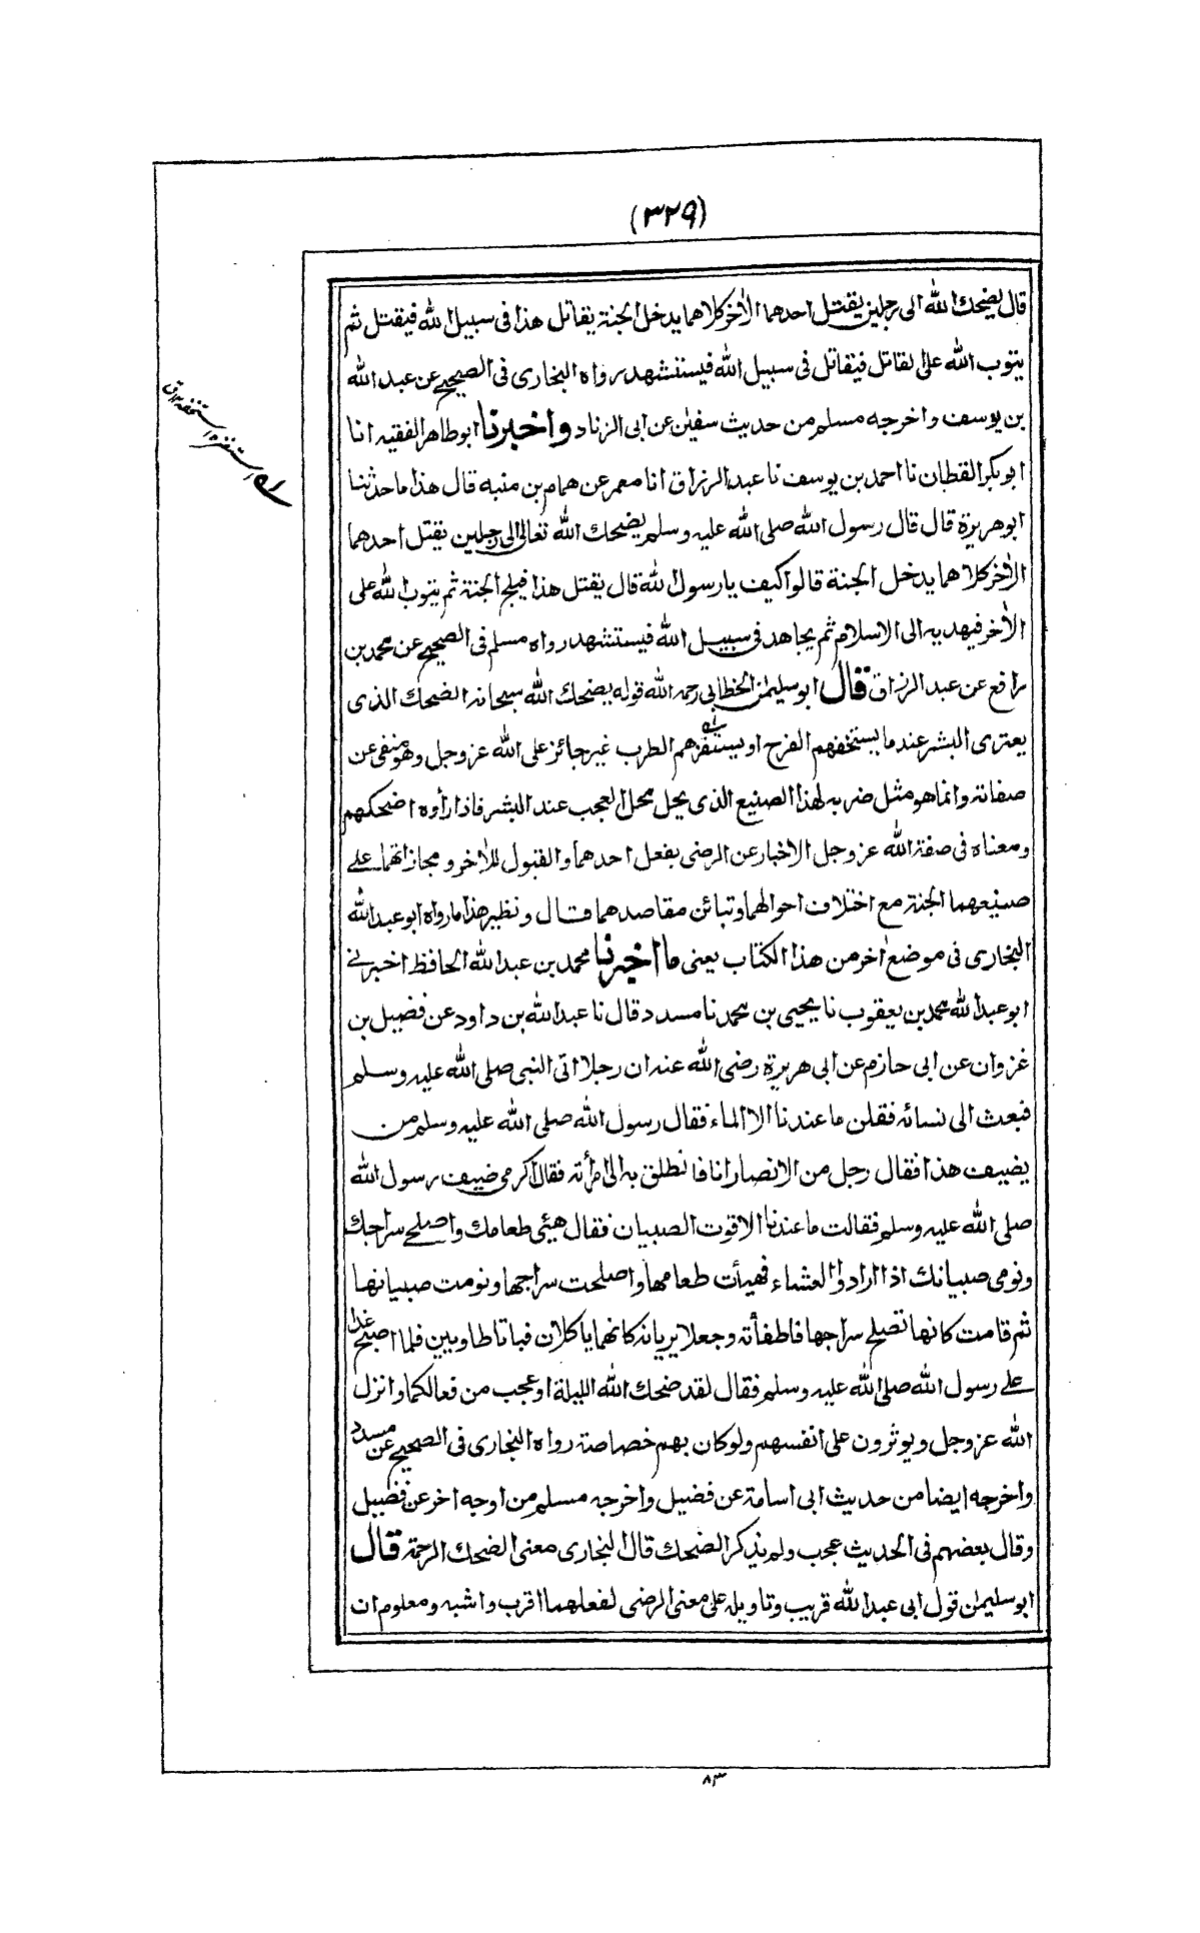 (٣٢٩)
قال يضحك الله الى رجلين يقتل احدهما الاٰخر كلاهما يدخل الجنة يقاتل هذا فى سبيل الله فيقتل ثم
يتوب الله على القاتل فيقاتل فى سبيل الله فيستشهد رواه البخارى فى الصحيح عن عبد الله
بن يوسف واخرجه مسلم من حديث سفيٰن عن ابى الزناد واخبرنا ابو طاهر الفقيه انا
ابو بكر القطان نا احمد بن يوسف نا عبد الرزاق انا معمر عن همام بن منبه قال هذا ما حدثنا
ابو هريرة قال قال رسول الله صلى الله عليه وسلم يضحك الله تعالى الى رجلين يقتل احدهما
الاٰخر كلاهما يدخل الجنة قالوا كيف يا رسول الله قال يقتل هذا فيلج الجنة ثم يتوب الله على
الاٰخر فيهديه الى الاسلام ثم يجاهد فى سبيل الله فيستشهد رواه مسلم فى الصحيح عن محمد بن
رافع عن عبد الرزاق قال ابو سليمٰن الخطابى رحمه الله قوله يضحك الله سبحانه الضحك الذى
يعترى البشر عند ما يستخفهم الفرح او يستفزهم الطرب غير جائز على الله عز وجل وهو منفى عن
صفاته وانما هو مثل ضربه لهذا الصنيع الذى يحل محل العجب عند البشر فاذا رأوه اضحكهم
ومعناه فى صفة الله عز وجل الاخبار عن الرضى بفعل احدهما والقبول للاٰخر ومجازاتهما على
صنيعهما الجنة مع اختلاف احوالهما وتبائن مقاصدهما قال ونظير هذا ما رواه ابو عبد الله
البخارى فى موضع اٰخر من هذا الكتاب يعنى ما اخبرنا محمد بن عبد الله الحافظ اخبرنى
ابو عبد الله محمد بن يعقوب نا يحيى بن محمد نا مسدد قال نا عبد الله بن داود عن فضيل بن
غزوان عن ابى حازم عن ابى هريرة رضى الله عنه ان رجلا اتى النبى صلى الله عليه وسلم
فبعث الى نسائه فقلن ما عندنا الا الماء فقال رسول الله صلى الله عليه وسلم من
يضيف هذا فقال رجل من الانصار انا فانطلق به الى امرأته فقال اكرمى ضيف رسول الله
صلى الله عليه وسلم فقالت ما عندنا الا قوت الصبيان فقال هيئى طعامك واصلحى سراجك
ونومى صبيانك اذا ارادوا العشاء فهيأت طعامها واصلحت سراجها ونومت صبيانها
ثم قامت كانها تصلح سراجها فاطفأته وجعلا يريانه كانهما ياكلان فباتا طاويين فلما اصبح غدا
على رسول الله صلى الله عليه وسلم فقال لقد ضحك الله الليلة او عجب من فعالكما وانزل
الله عز وجل ويوثرون على انفسهم ولو كان بهم خصاصة رواه البخارى فى الصحيح عن مسدد
واخرجه ايضا من حديث ابى اسامة عن فضيل واخرجه مسلم من اوجه اخر عن فضيل
وقال بعضهم فى الحديث عجب ولم يذكر الضحك قال البخارى معنى الضحك الرحمة قال
ابو سليمٰن قول ابى عبد الله قريب وتاويله على معنى الرضى لفعلهما اقرب واشبه ومعلوم ان
٨٣